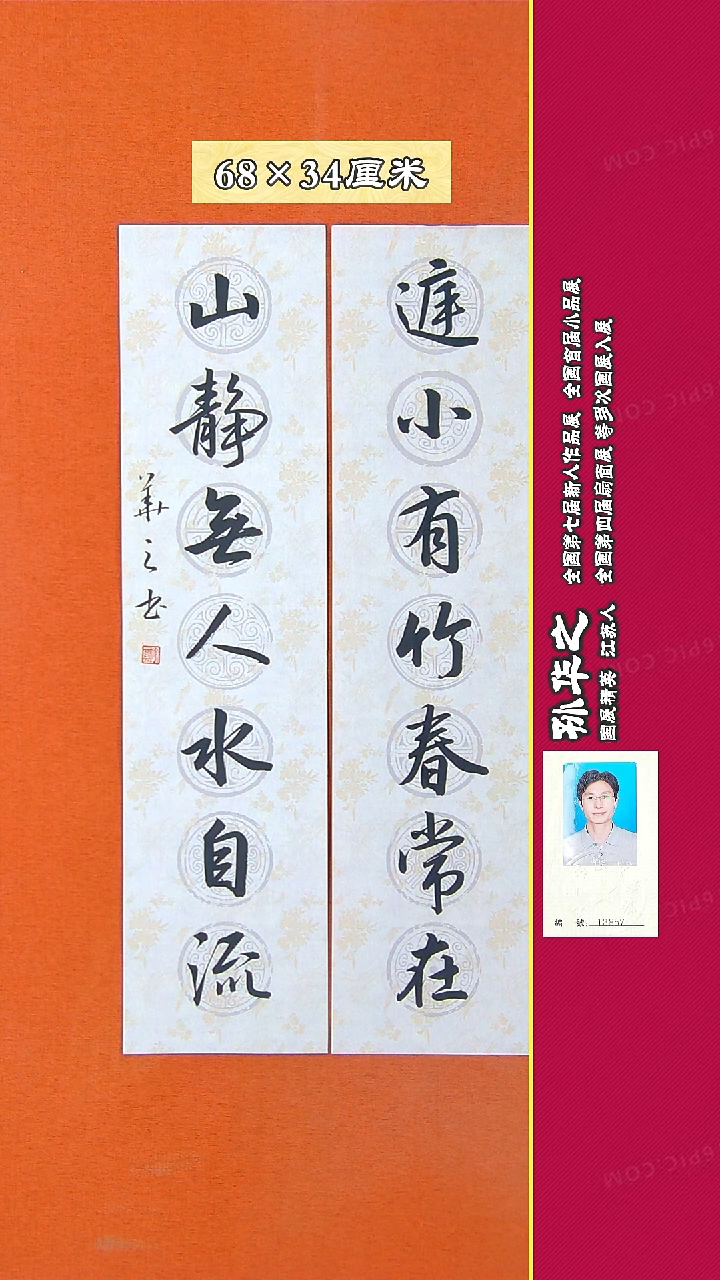 68×34厘米
庭小有竹春常在
山静無人水自流
華之书
孙华之
国展精英 江苏人
全国第七届新人作品展 全国首届小品展
全国第四届扇面展 等多次国展入展
編 號:
6PIC.COM
6PIC.COM
6PIC.COM
6PIC.COM
6PIC.COM